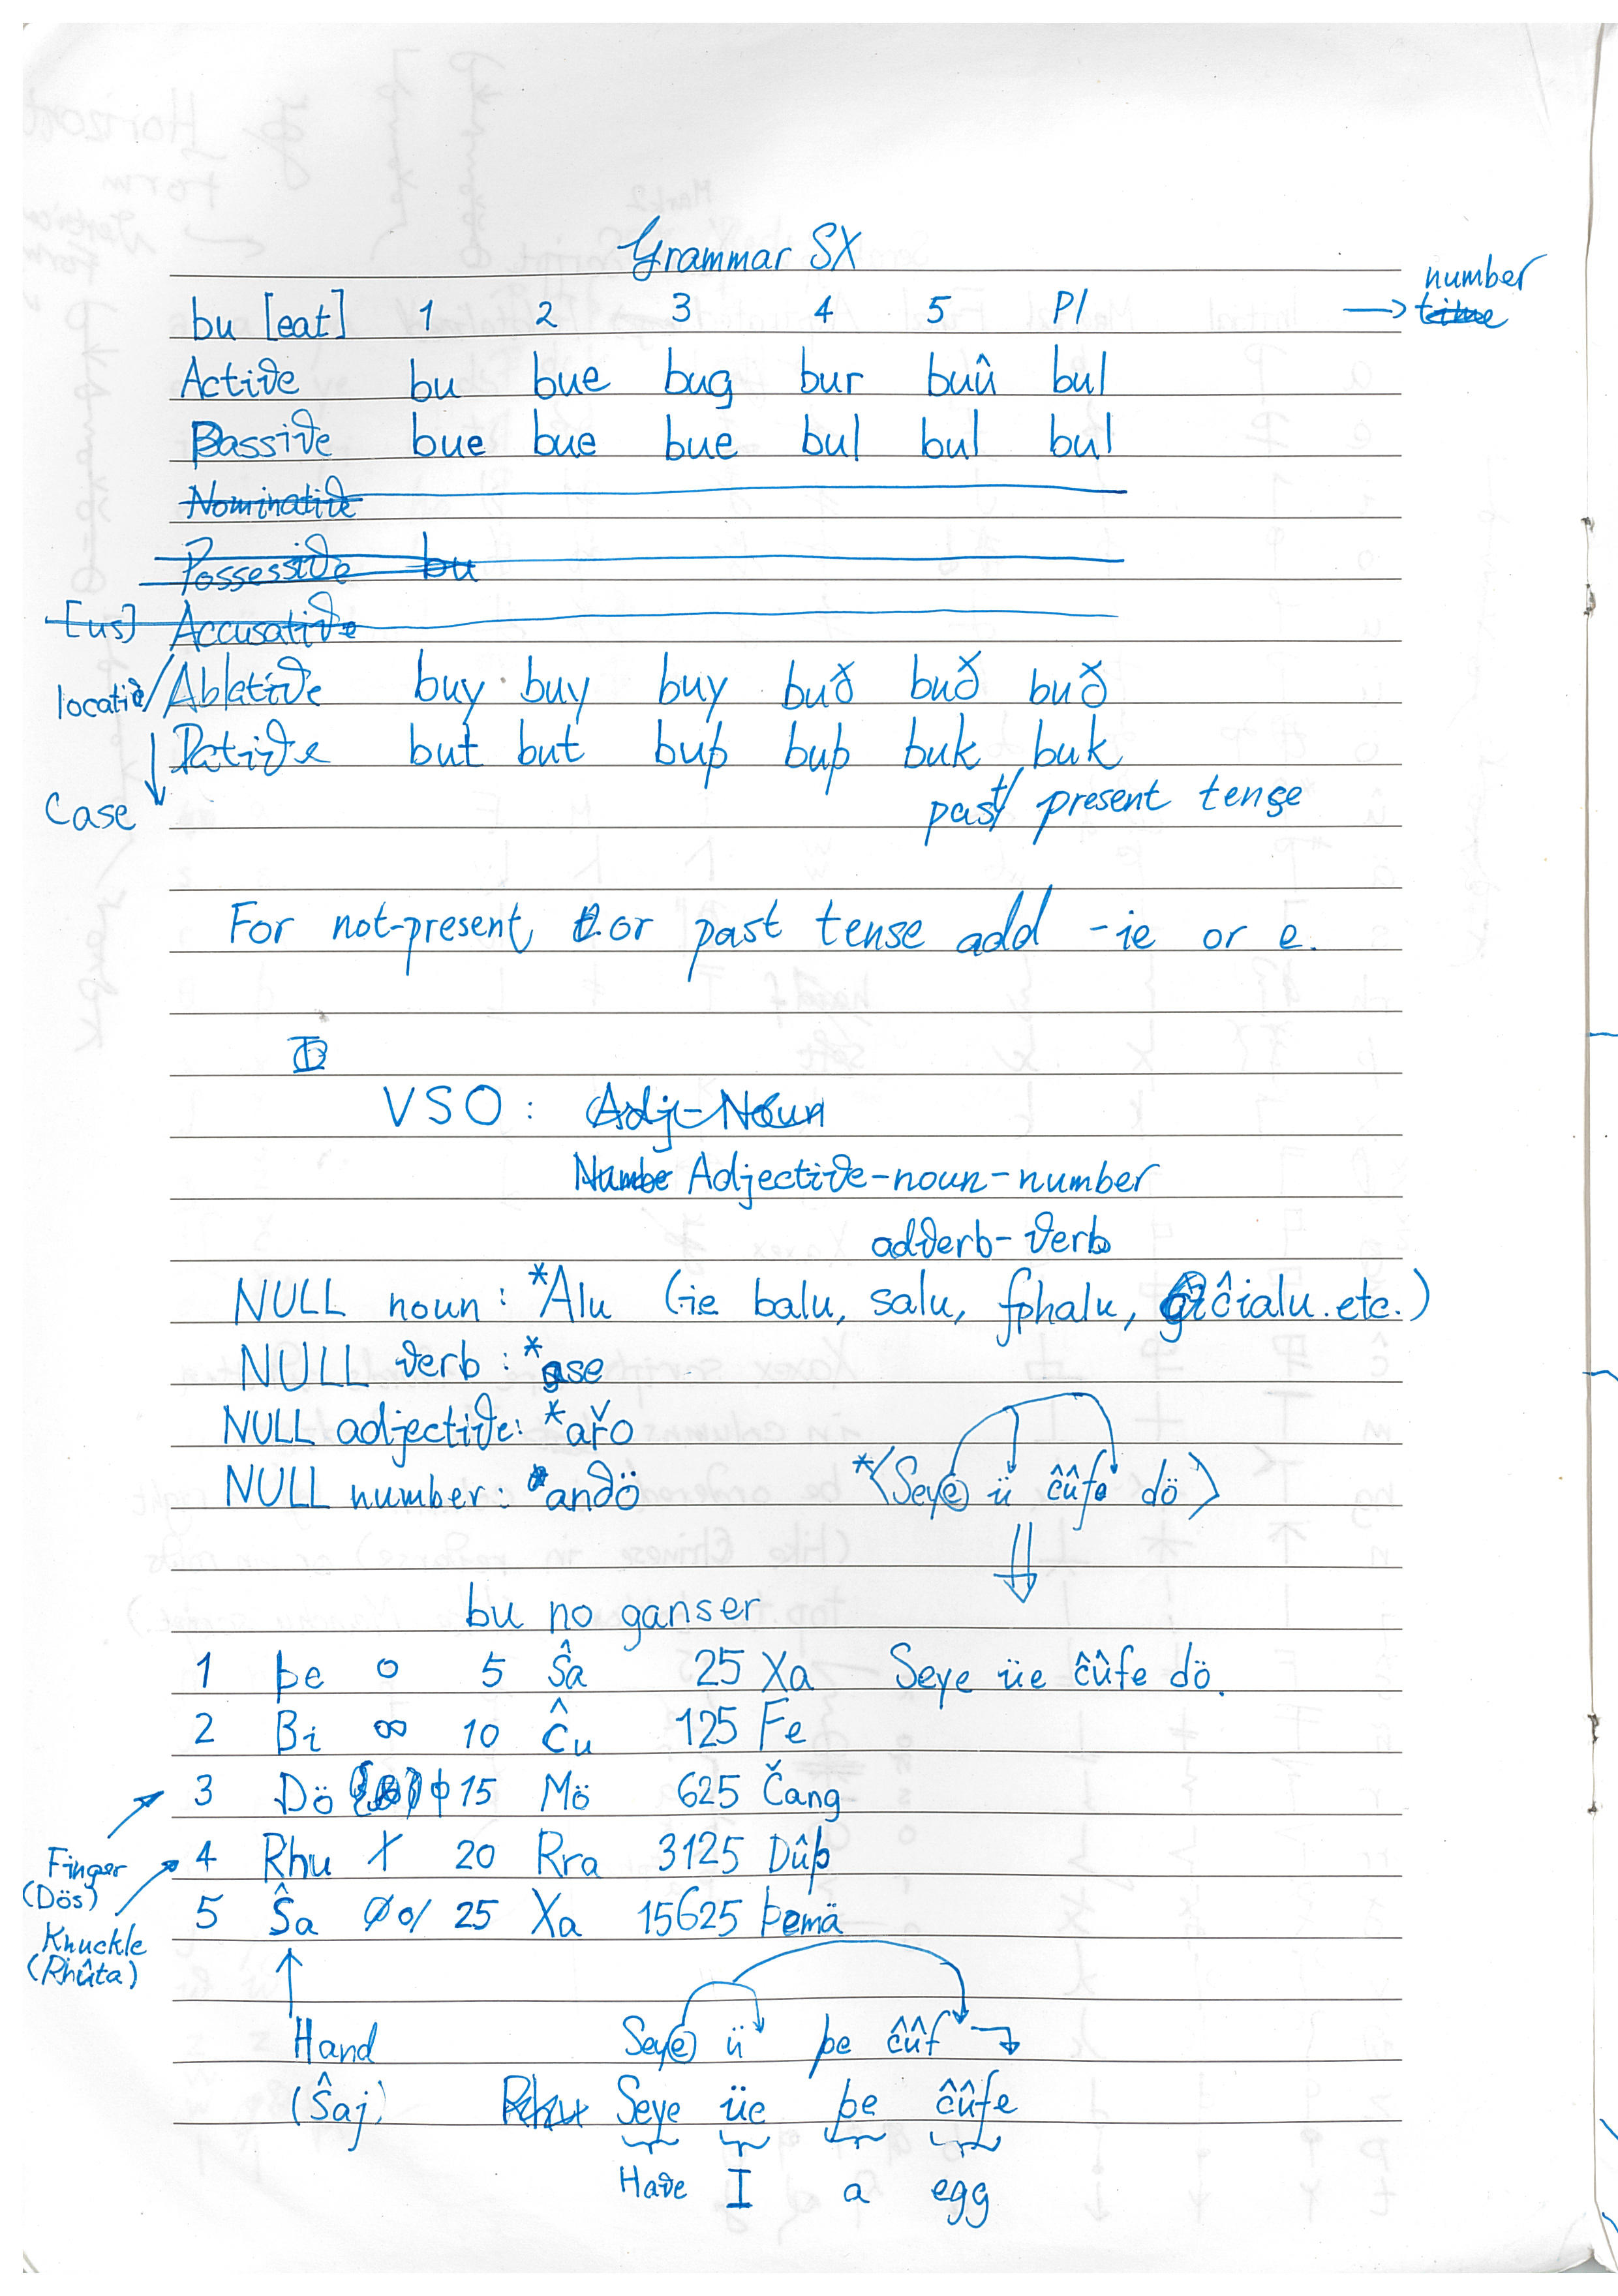 Grammar SX
bu [eat] 1 2 3 4 5 Pl → number
time
Active bu bue bug bur buû bul
Passive bue bue bue bul bul bul
Nominative
Possessive bu
[us] Accusative
locative/Ablative buy buy buy buð buð buð
Dative but but buþ buþ buk buk
Case
past/present tense
For not-present or past tense add -ie or e.
VSO: Adj-Noun
Numbe Adjective-noun-number
adverb-verb
NULL noun: *Alu (ie balu, salu, fphalu, ĉialu.etc.)
NULL verb: *ase
NULL adjective: *ařo
NULL number: *andö *⟨Seye ü ĉûfe dö⟩
bu no ganser
1 þe o 5 Ŝa 25 Xa Seye üe ĉûfe dö.
2 Bi ∞ 10 Ĉu 125 Fe
3 Dö ϕ 15 Mö 625 Čang
Finger (Dös) 4 Rhu X 20 Rra 3125 Dûþ
5 Ŝa Ø o/ 25 Xa 15625 þemä
Knuckle
(Rhûta)
Hand Seye ü þe ĉûf →
(Ŝaj) Rhu Seye üe þe ĉûfe
Have I a egg